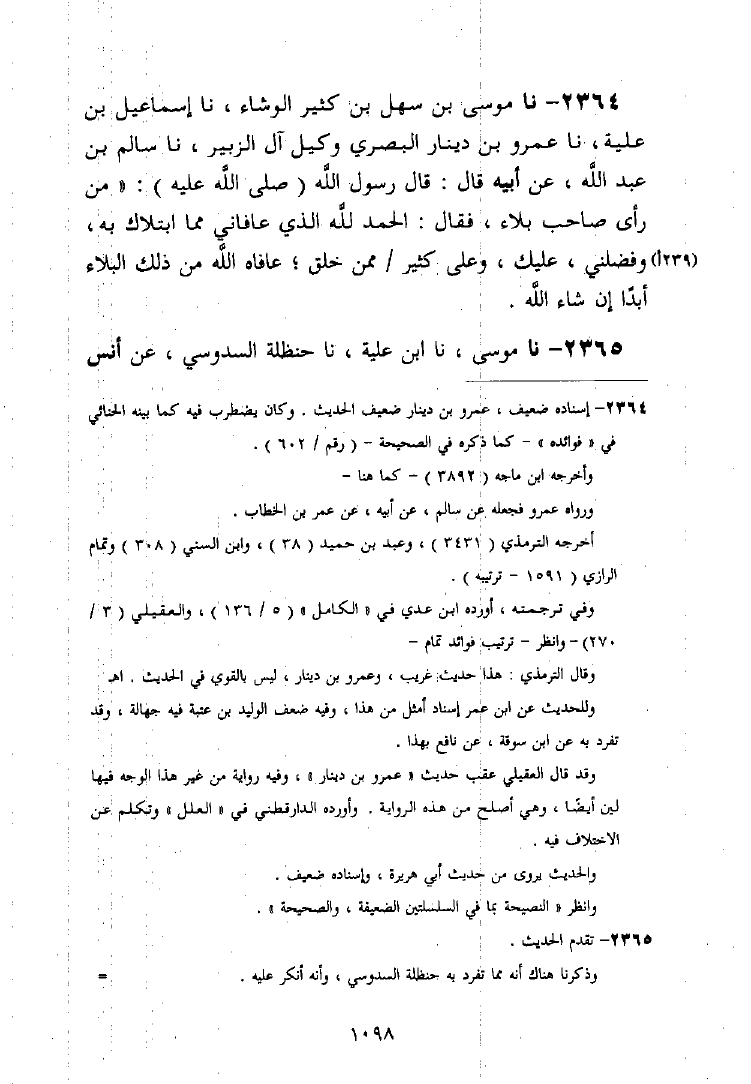 ٢٣٦٤- نا موسى بن سهل بن كثير الوشاء ، نا إسماعيل بن
علية ، نا عمرو بن دينار البصري وكيل آل الزبير ، نا سالم بن
عبد الله ، عن أبيه قال : قال رسول الله ( صلى الله عليه ) : « من
رأى صاحب بلاء ، فقال : الحمد لله الذي عافاني مما ابتلاك به ،
(٢٣٩أ) وفضلني ، عليك ، وعلى كثير / ممن خلق ؛ عافاه الله من ذلك البلاء
أبدًا إن شاء الله .
٢٣٦٥- نا موسى ، نا ابن علية ، نا حنظلة السدوسي ، عن أنس
٢٣٦٤- إسناده ضعيف ، عمرو بن دينار ضعيف الحديث . وكان يضطرب فيه كما بينه الحنائي
في « فوائده » - كما ذكره في الصحيحة - ( رقم / ٦٠٢ ) .
وأخرجه ابن ماجه ( ٣٨٩٢ ) - كما هنا -
ورواه عمرو فجعله عن سالم ، عن أبيه ، عن عمر بن الخطاب .
أخرجه الترمذي ( ٣٤٣١ ) ، وعبد بن حميد ( ٣٨ ) ، وابن السني ( ٣٠٨ ) وتمام
الرازي ( ١٥٩١ - ترتيبه ) .
وفي ترجمته ، أورده ابن عدي في « الكامل » ( ٥ / ١٣٦ ) ، والعقيلي ( ٣ /
٢٧٠) - وانظر - ترتيب فوائد تمام -
وقال الترمذي : هذا حديث غريب ، وعمرو بن دينار ، ليس بالقوي في الحديث . اهـ
وللحديث عن ابن عمر إسناد أمثل من هذا ، وفيه ضعف الوليد بن عتبة فيه جهالة ، وقد
تفرد به عن ابن سوقة ، عن نافع بهذا .
وقد قال العقيلي عقب حديث « عمرو بن دينار » ، وفيه رواية من غير هذا الوجه فيها
لين أيضًا ، وهي أصلح من هذه الرواية . وأورده الدارقطني في « العلل » وتكلم عن
الاختلاف فيه .
والحديث يروى من حديث أبي هريرة ، وإسناده ضعيف .
وانظر « النصيحة بما في السلسلتين الضعيفة ، والصحيحة » .
٢٣٦٥- تقدم الحديث .
وذكرنا هناك أنه مما تفرد به حنظلة السدوسي ، وأنه أنكر عليه . =
١٠٩٨